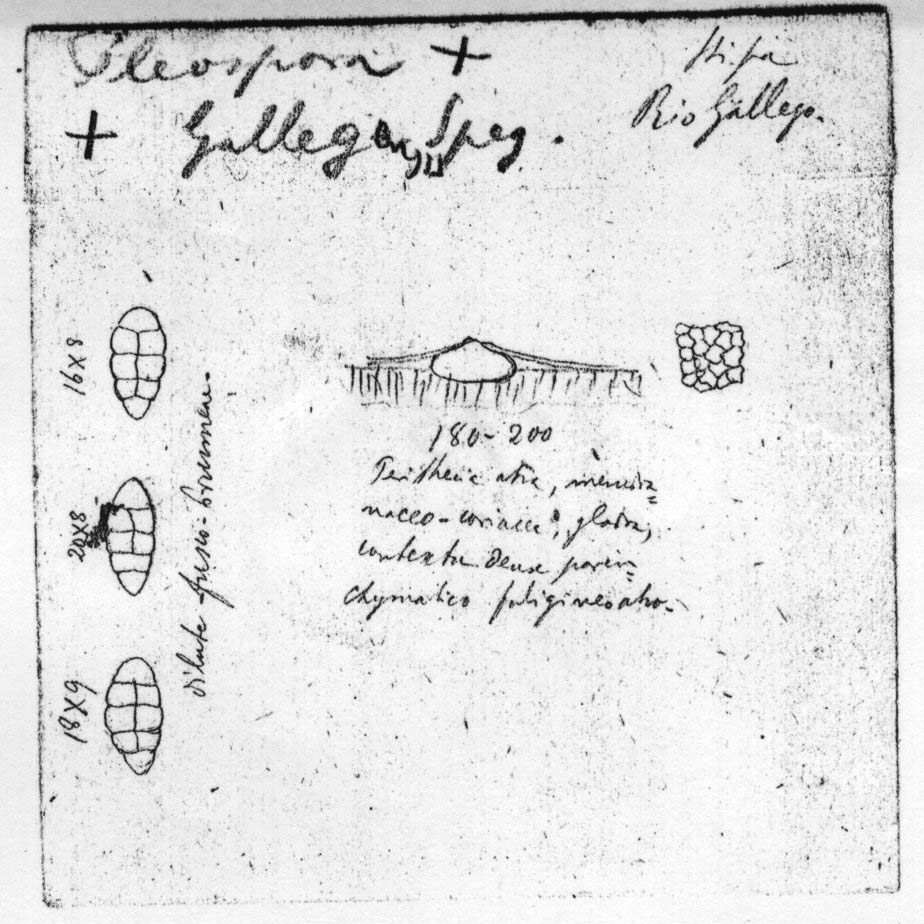 Pleospora +
+ Gallegensis Speg.
Stipa
Rio Gallego.
16X8
20X8
18X9
dilute fusco-brunneae.
180-200
Perithecia atra, membra=
naceo-coriacea, glabra,
contextu dense paren=
chymatico fuligineo atro.